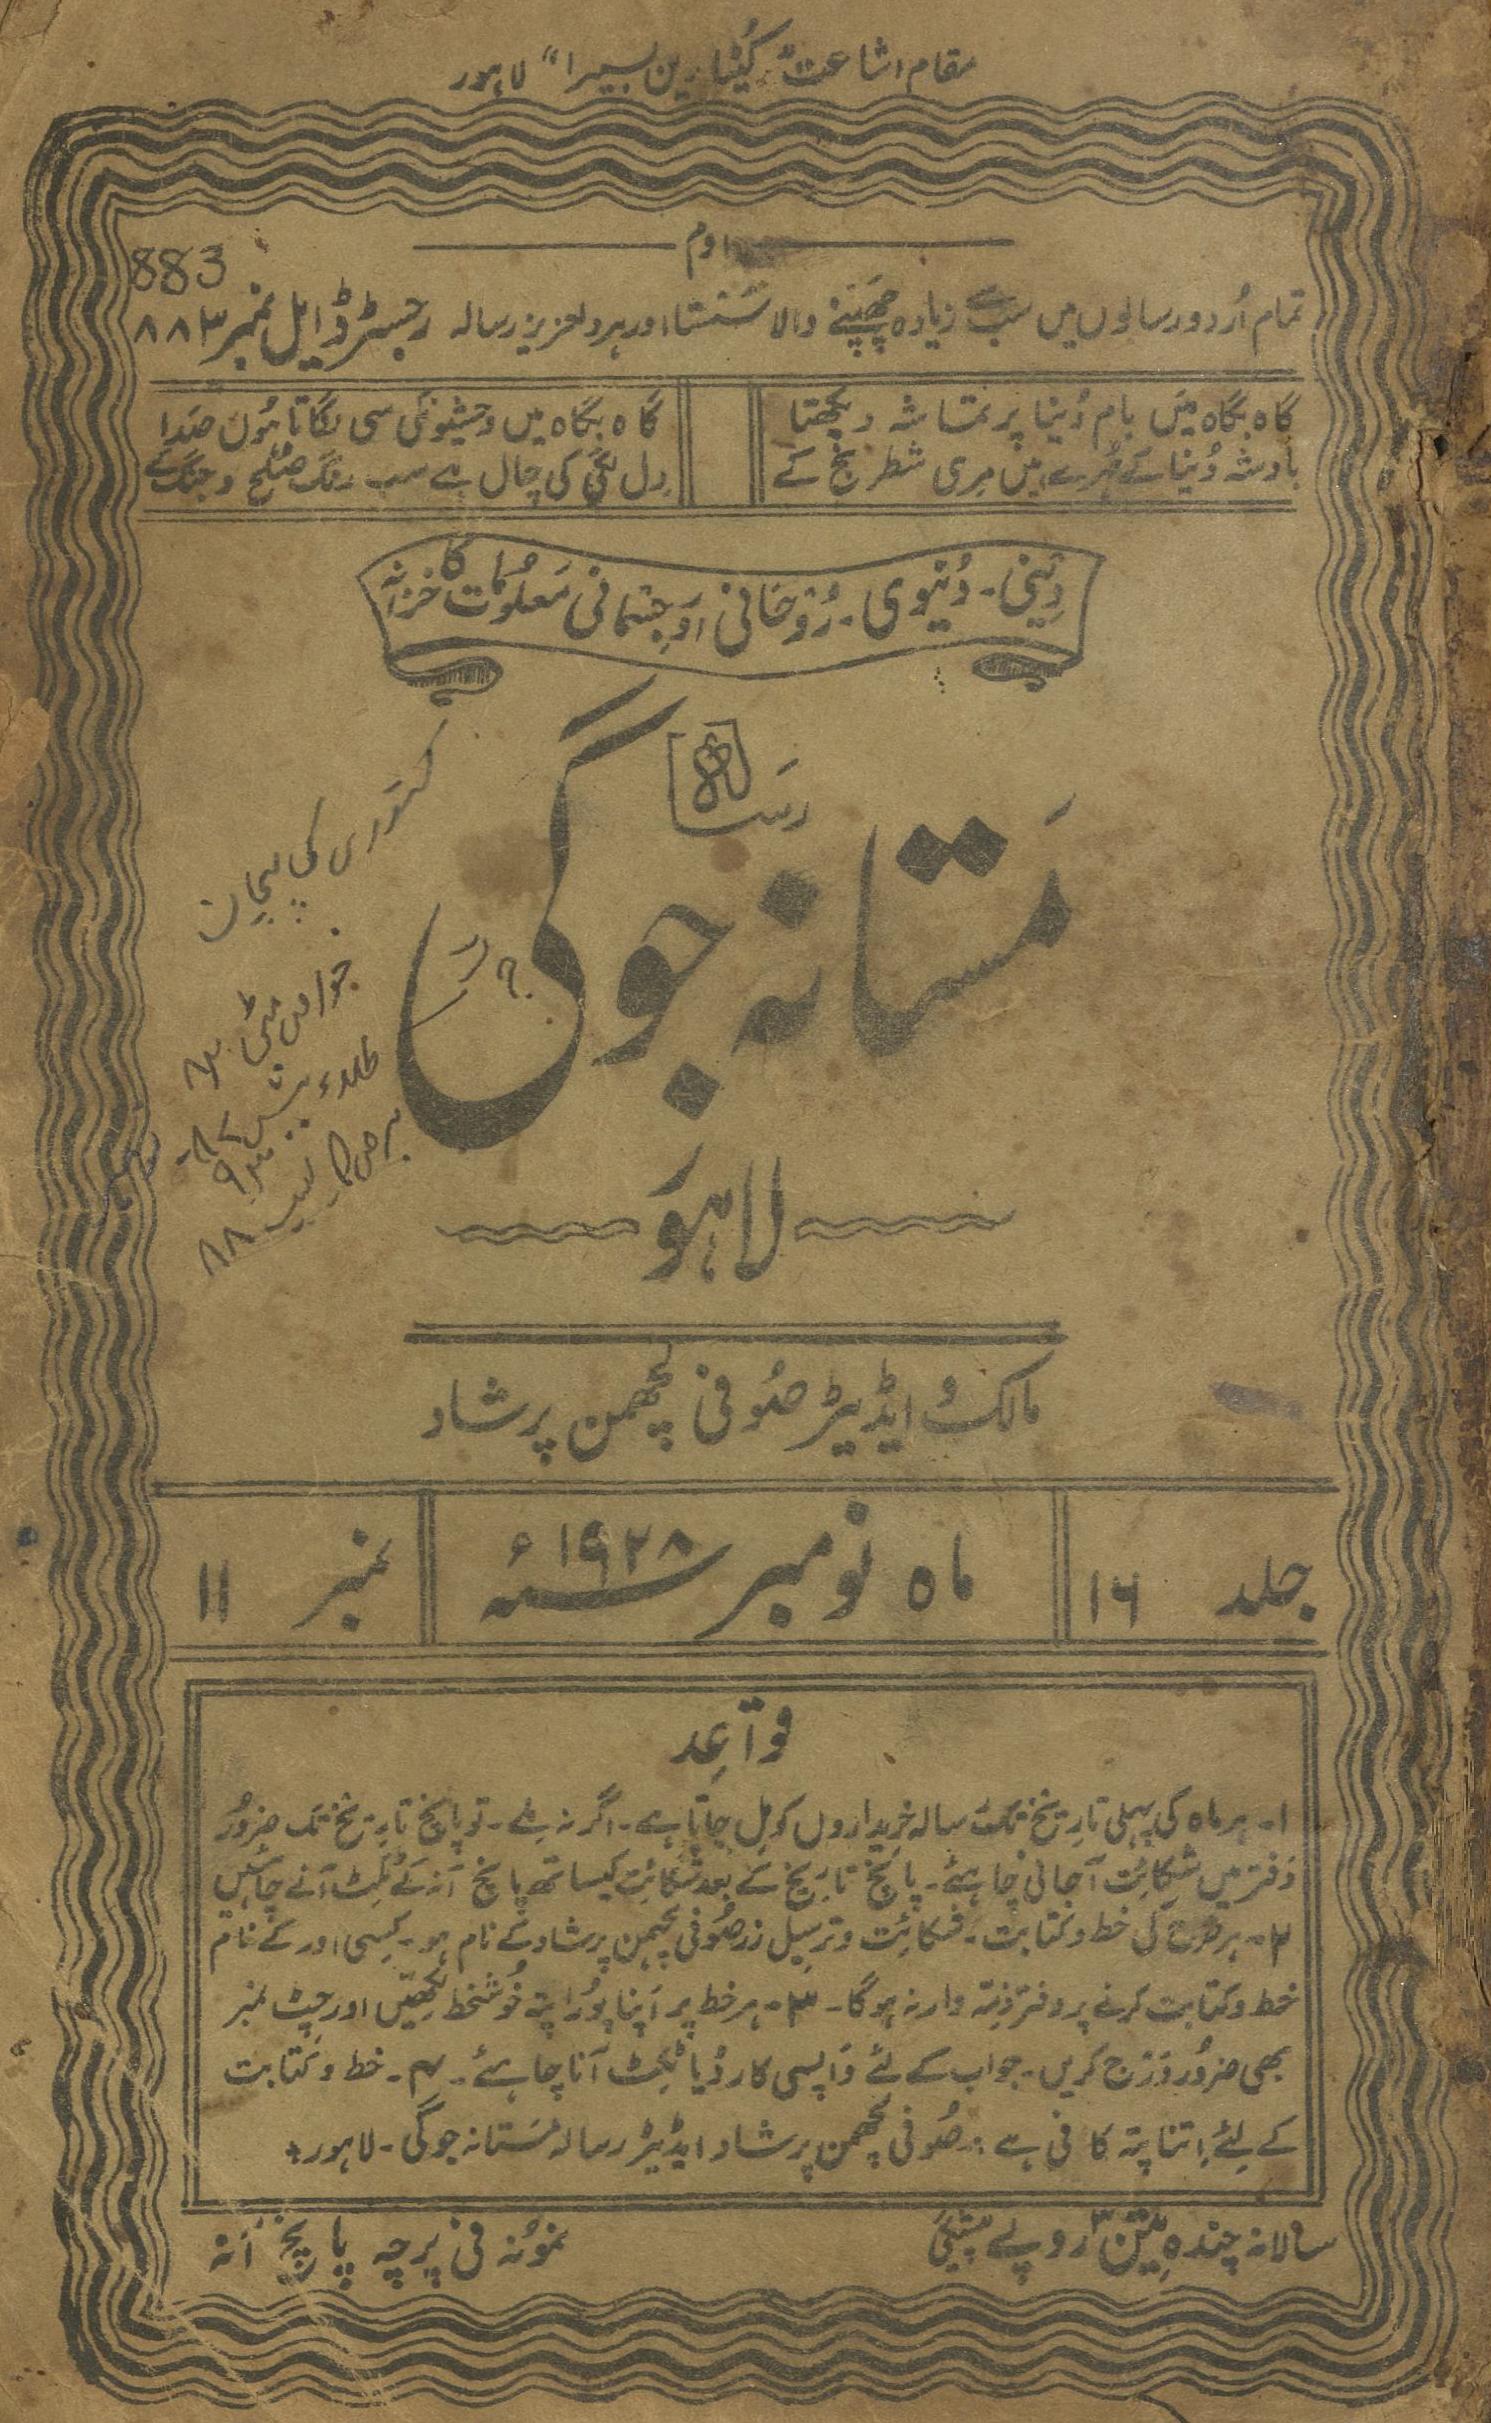 مقام اشاعت "کُٹیا رین بسیرا" لاہور
اوم
883
تمام اُردو رسالوں میں سب سے زیادہ چھپنے والا سستا اور ہردلعزیز رسالہ رجسٹرڈ ایل نمبر ۸۸۳
گاہ بگاہ میں بام دُنیا پر تماشہ دیکھتا
گاہ بگاہ میں وحشیونکی سی لگاتا ہوں صدا
بادشہ دُنیا کے مُہرے ہیں مری شطرنج کے
دل لگی کی چال ہے سب رنگ صُلح و جنگ کے
دینی - دُنیوی - رُوحانی اور جسمانی معلُومات کا خزانہ
رسالہ
مستانہ جوگی
لاہور
کستوری کی پہچان
مالک و ایڈیٹر صُوفی لچھمن پرشاد
جلد ۱۶
ماہ نومبر ۱۹۲۸ء
نمبر ۱۱
قواعد
۱- ہر ماہ کی پہلی تاریخ تک رسالہ خریداروں کو مل جاتا ہے - اگر نہ ملے - تو پانچ تاریخ تک ضرور
دفتر میں شکائت آجانی چاہئے - پانچ تاریخ کے بعد شکائت کیساتھ پانچ آنہ کے ٹکٹ آنے چاہئیں
۲- ہر طرح کی خط و کتابت - شکائت و ترسیل زر صُوفی لچھمن پرشاد کے نام ہو - کسی اور کے نام
خط و کتابت کرنے پر دفتر ذمّہ وار نہ ہوگا - ۳- ہر خط پر اپنا پُورا پتہ خُوشخط لکھیں اور چٹ نمبر
بھی ضرور درج کریں - جواب کے لئے واپسی کارڈ یا ٹکٹ آنا چاہئے - ۴- خط و کتابت
کے لئے اتنا پتہ کافی ہے :- صُوفی لچھمن پرشاد ایڈیٹر رسالہ مستانہ جوگی - لاہور +
سالانہ چندہ تین ۳ روپے پیشگی
نمونہ فی پرچہ پانچ آنہ